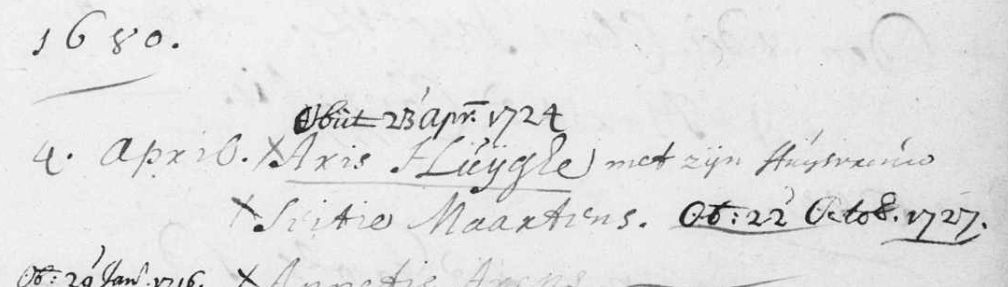 1680.
Obiit 23 apr. 1724
4. April. × Aris HLuÿgle met zijn Huijsvrouw
× Maartens. Ob: 22 Octob. 1727.
Ob: 29 Jan. 1716. × Annetie Arens